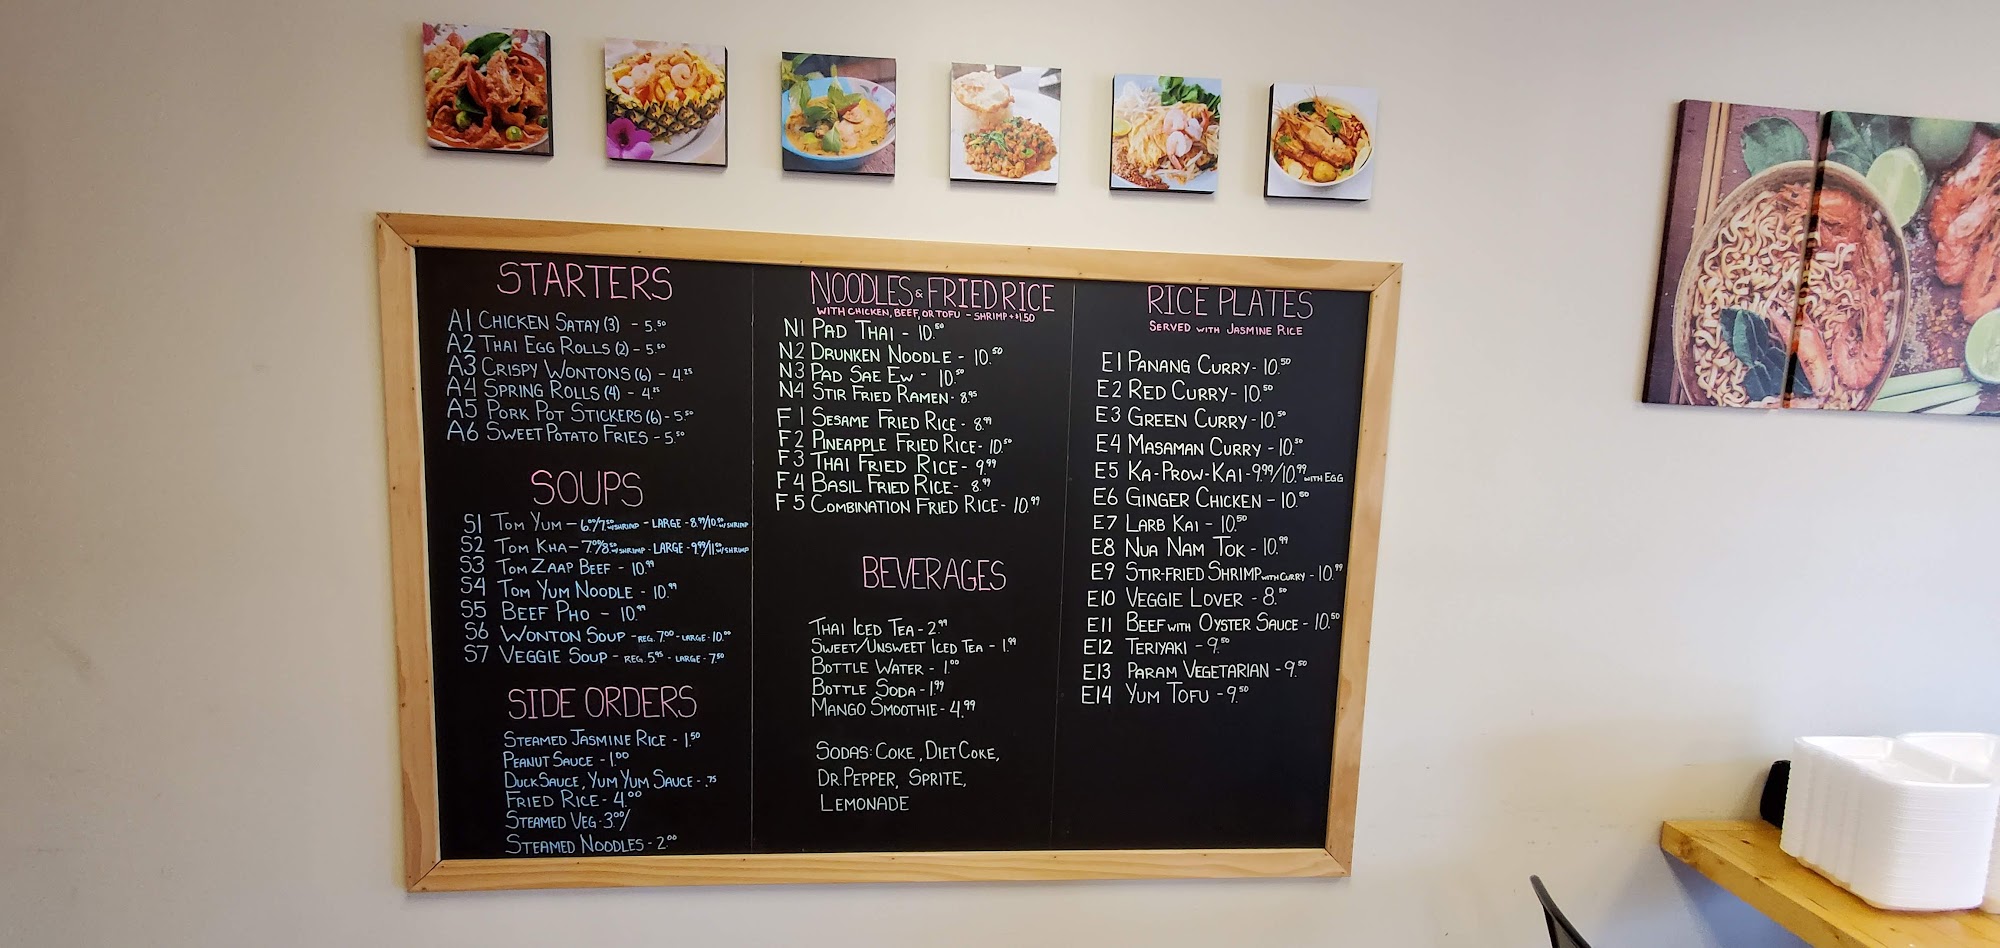 STARTERS
A1 CHICKEN SATAY (3) - 5.50
A2 THAI EGG ROLLS (2) - 5.50
A3 CRISPY WONTONS (6) - 4.25
A4 SPRING ROLLS (4) - 4.25
A5 PORK POT STICKERS (6) - 5.50
A6 SWEET POTATO FRIES - 5.50
SOUPS
S1 TOM YUM - 6.00/7.50 W/SHRIMP - LARGE - 8.99/10.50 W/SHRIMP
S2 TOM KHA - 7.00/8.50 W/SHRIMP - LARGE - 9.99/11.50 W/SHRIMP
S3 TOM ZAAP BEEF - 10.99
S4 TOM YUM NOODLE - 10.99
S5 BEEF PHO - 10.99
S6 WONTON SOUP - REG. 7.00 - LARGE - 10.00
S7 VEGGIE SOUP - REG. 5.95 - LARGE - 7.50
SIDE ORDERS
STEAMED JASMINE RICE - 1.50
PEANUT SAUCE - 1.00
DUCK SAUCE, YUM YUM SAUCE - .75
FRIED RICE - 4.00
STEAMED VEG - 3.00/
STEAMED NOODLES - 2.00
NOODLES & FRIED RICE
WITH CHICKEN, BEEF, OR TOFU - SHRIMP + $1.50
N1 PAD THAI - 10.50
N2 DRUNKEN NOODLE - 10.50
N3 PAD SAE EW - 10.50
N4 STIR FRIED RAMEN - 8.95
F1 SESAME FRIED RICE - 8.99
F2 PINEAPPLE FRIED RICE - 10.50
F3 THAI FRIED RICE - 9.99
F4 BASIL FRIED RICE - 8.99
F5 COMBINATION FRIED RICE - 10.99
BEVERAGES
THAI ICED TEA - 2.99
SWEET/UNSWEET ICED TEA - 1.99
BOTTLE WATER - 1.00
BOTTLE SODA - 1.99
MANGO SMOOTHIE - 4.99
SODAS: COKE, DIET COKE,
DR. PEPPER, SPRITE,
LEMONADE
RICE PLATES
SERVED WITH JASMINE RICE
E1 PANANG CURRY - 10.50
E2 RED CURRY - 10.50
E3 GREEN CURRY - 10.50
E4 MASAMAN CURRY - 10.50
E5 KA-PROW-KAI - 9.99/10.99 WITH EGG
E6 GINGER CHICKEN - 10.50
E7 LARB KAI - 10.50
E8 NUA NAM TOK - 10.99
E9 STIR-FRIED SHRIMP WITH CURRY - 10.99
E10 VEGGIE LOVER - 8.50
E11 BEEF WITH OYSTER SAUCE - 10.50
E12 TERIYAKI - 9.50
E13 PARAM VEGETARIAN - 9.50
E14 YUM TOFU - 9.50